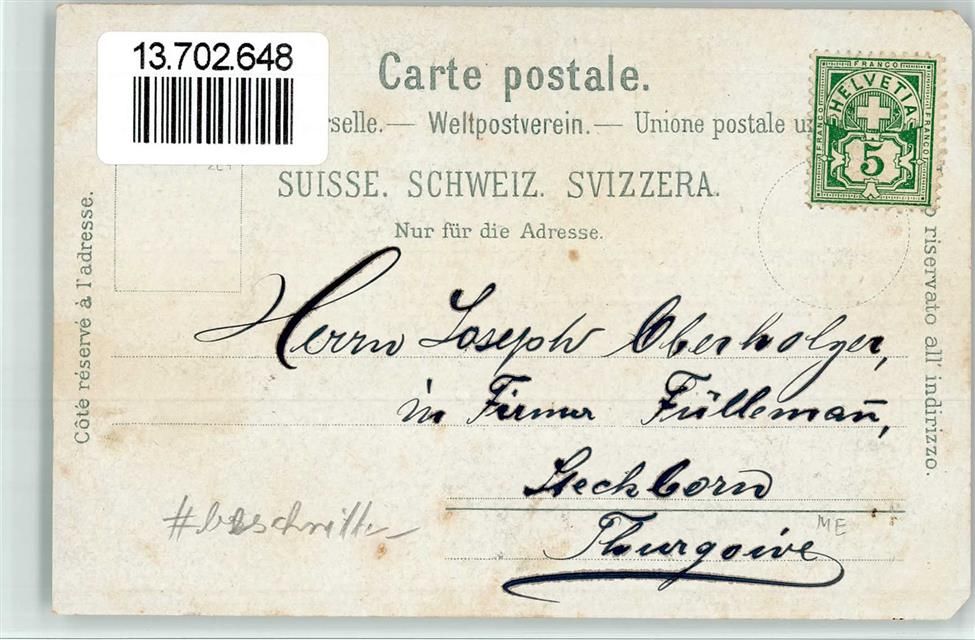 13.702.648
Carte postale.
rselle.— Weltpostverein.— Unione postale un
SUISSE. SCHWEIZ. SVIZZERA.
Nur für die Adresse.
Côté réservé à l'adresse.
o riservato all' indirizzo.
FRANCO
HELVETIA
FRANCO
FRANCO
5
Herrn Joseph Oberholzer,
in Firma Füllemañ,
Steckborn
Thurgovie
#beschnitten
ME